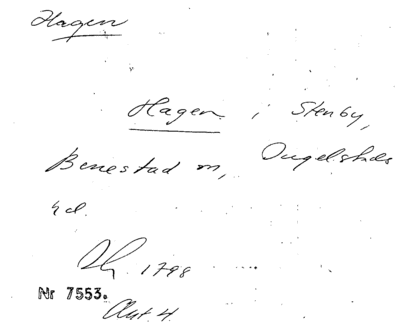 Hagen
Hagen i Stenby,
Benestad m, Ingelstads
hd.
Lh. 1798
Nr 7553.
Akt 4